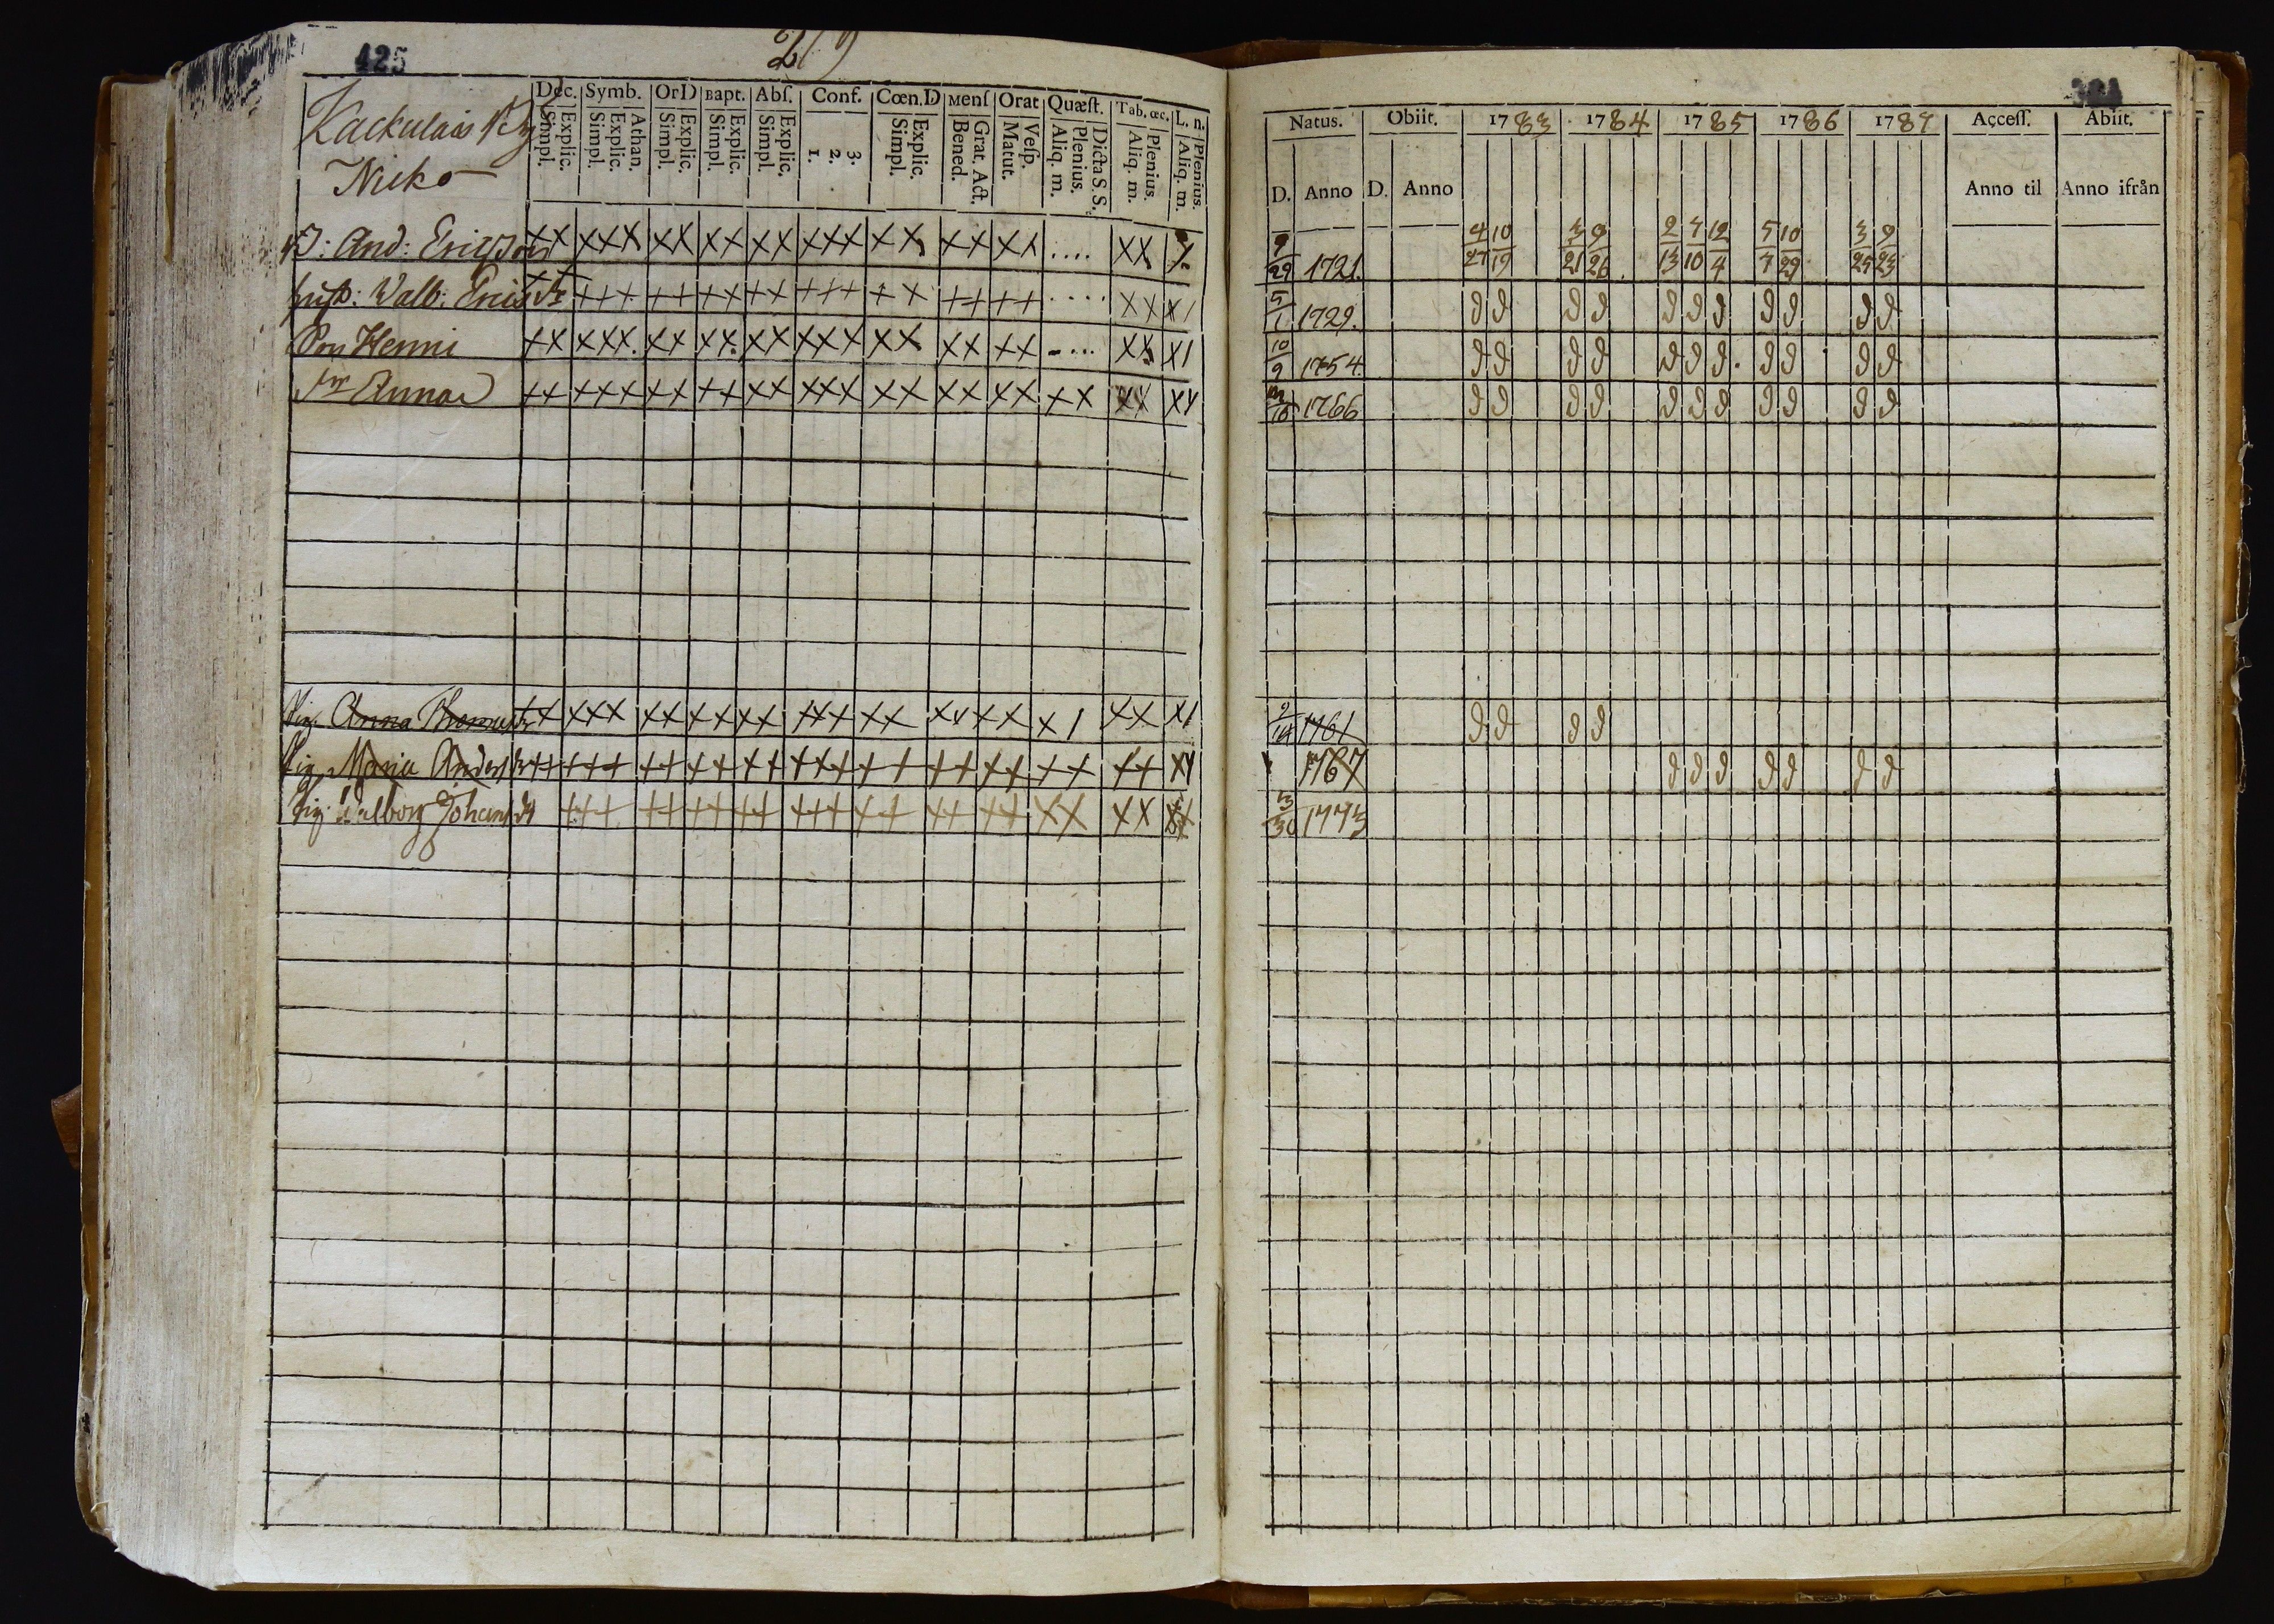 425
219
Kackulais By
Nicko
Dec. Symb. OrD Bapt. Abſ. Conf. Cœn.D Menſ Orat Quæſt. Tab. œc. L. n.
Explic. Simpl. Athan. Explic. Simpl. Explic. Simpl. Explic. Simpl. Explic. Simpl. 3. 2. 1. Explic. Simpl. Grat. Act. Bened. Veſp. Matut. Dicta S. S. Plenius. Aliq. m. Plenius. Aliq. m. Plenius. Aliq. m.
Natus. Obiit. 1783 1784 1785 1786 1787 Acceſſ. Abiit.
D. Anno D. Anno Anno til Anno ifrån
B: And: Ericsson XX XXX XX XX XX XXX XX XX XX .... XX 9/29 1721. 4/27 10/19 3/21 9/26 2/13 7/10 12/4 5/7 10/29 3/25 9/23
hust: Walb: Erics dr ++ +++ ++ ++ ++ +++ ++ ++ ++ .... XX X/ 5/1 1729. d d d d d d d d d d d
Son Henri XX XXX. XX XX. XX XXX XX XX XX .... XX X/ 10/9 1754. d d d d d d d. d d d d
dr Anna ++ +++ ++ ++ XX XXX XX XX XX XX XX XX 1766 d d d d d d d d d d d
Pig. Anna Thomasdr XX XXX XX XX XX XXX XX XX XX X/ XX X/ 2/14 1761 d d d d
Pig. Maria Anders dr ++ +++ ++ ++ ++ +++ ++ ++ ++ ++ ++ XX 1767 d d d d d d d
Pig. Walborg Johans dr +++ ++ ++ ++ +++ ++ ++ ++ XX XX XX 3/30 1773